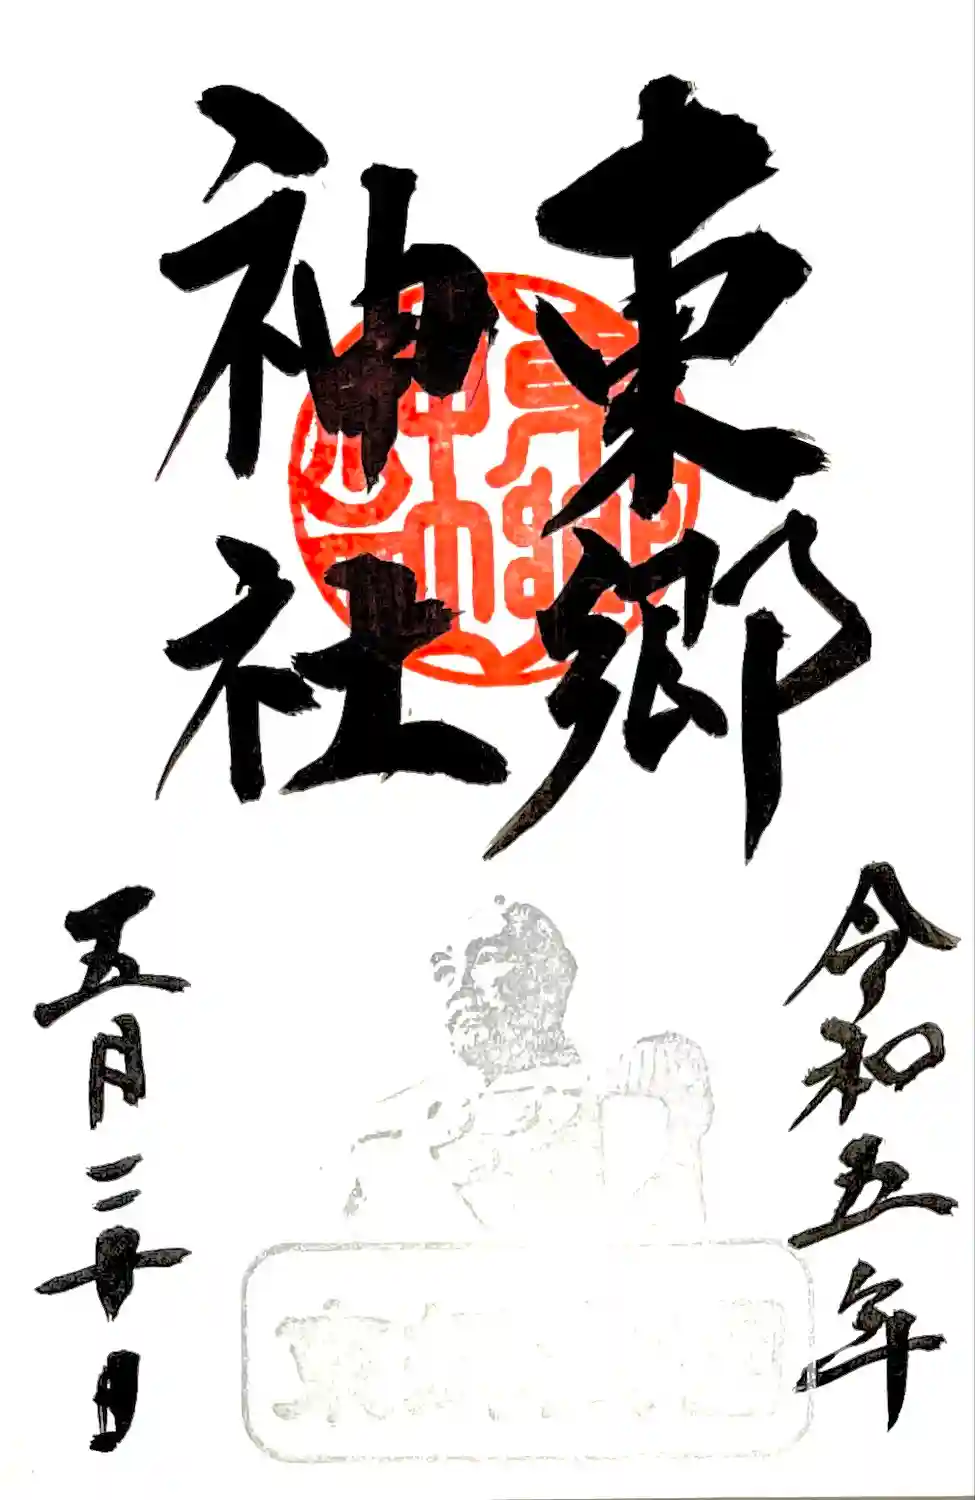 東郷
神社
令和五年
五月二十日